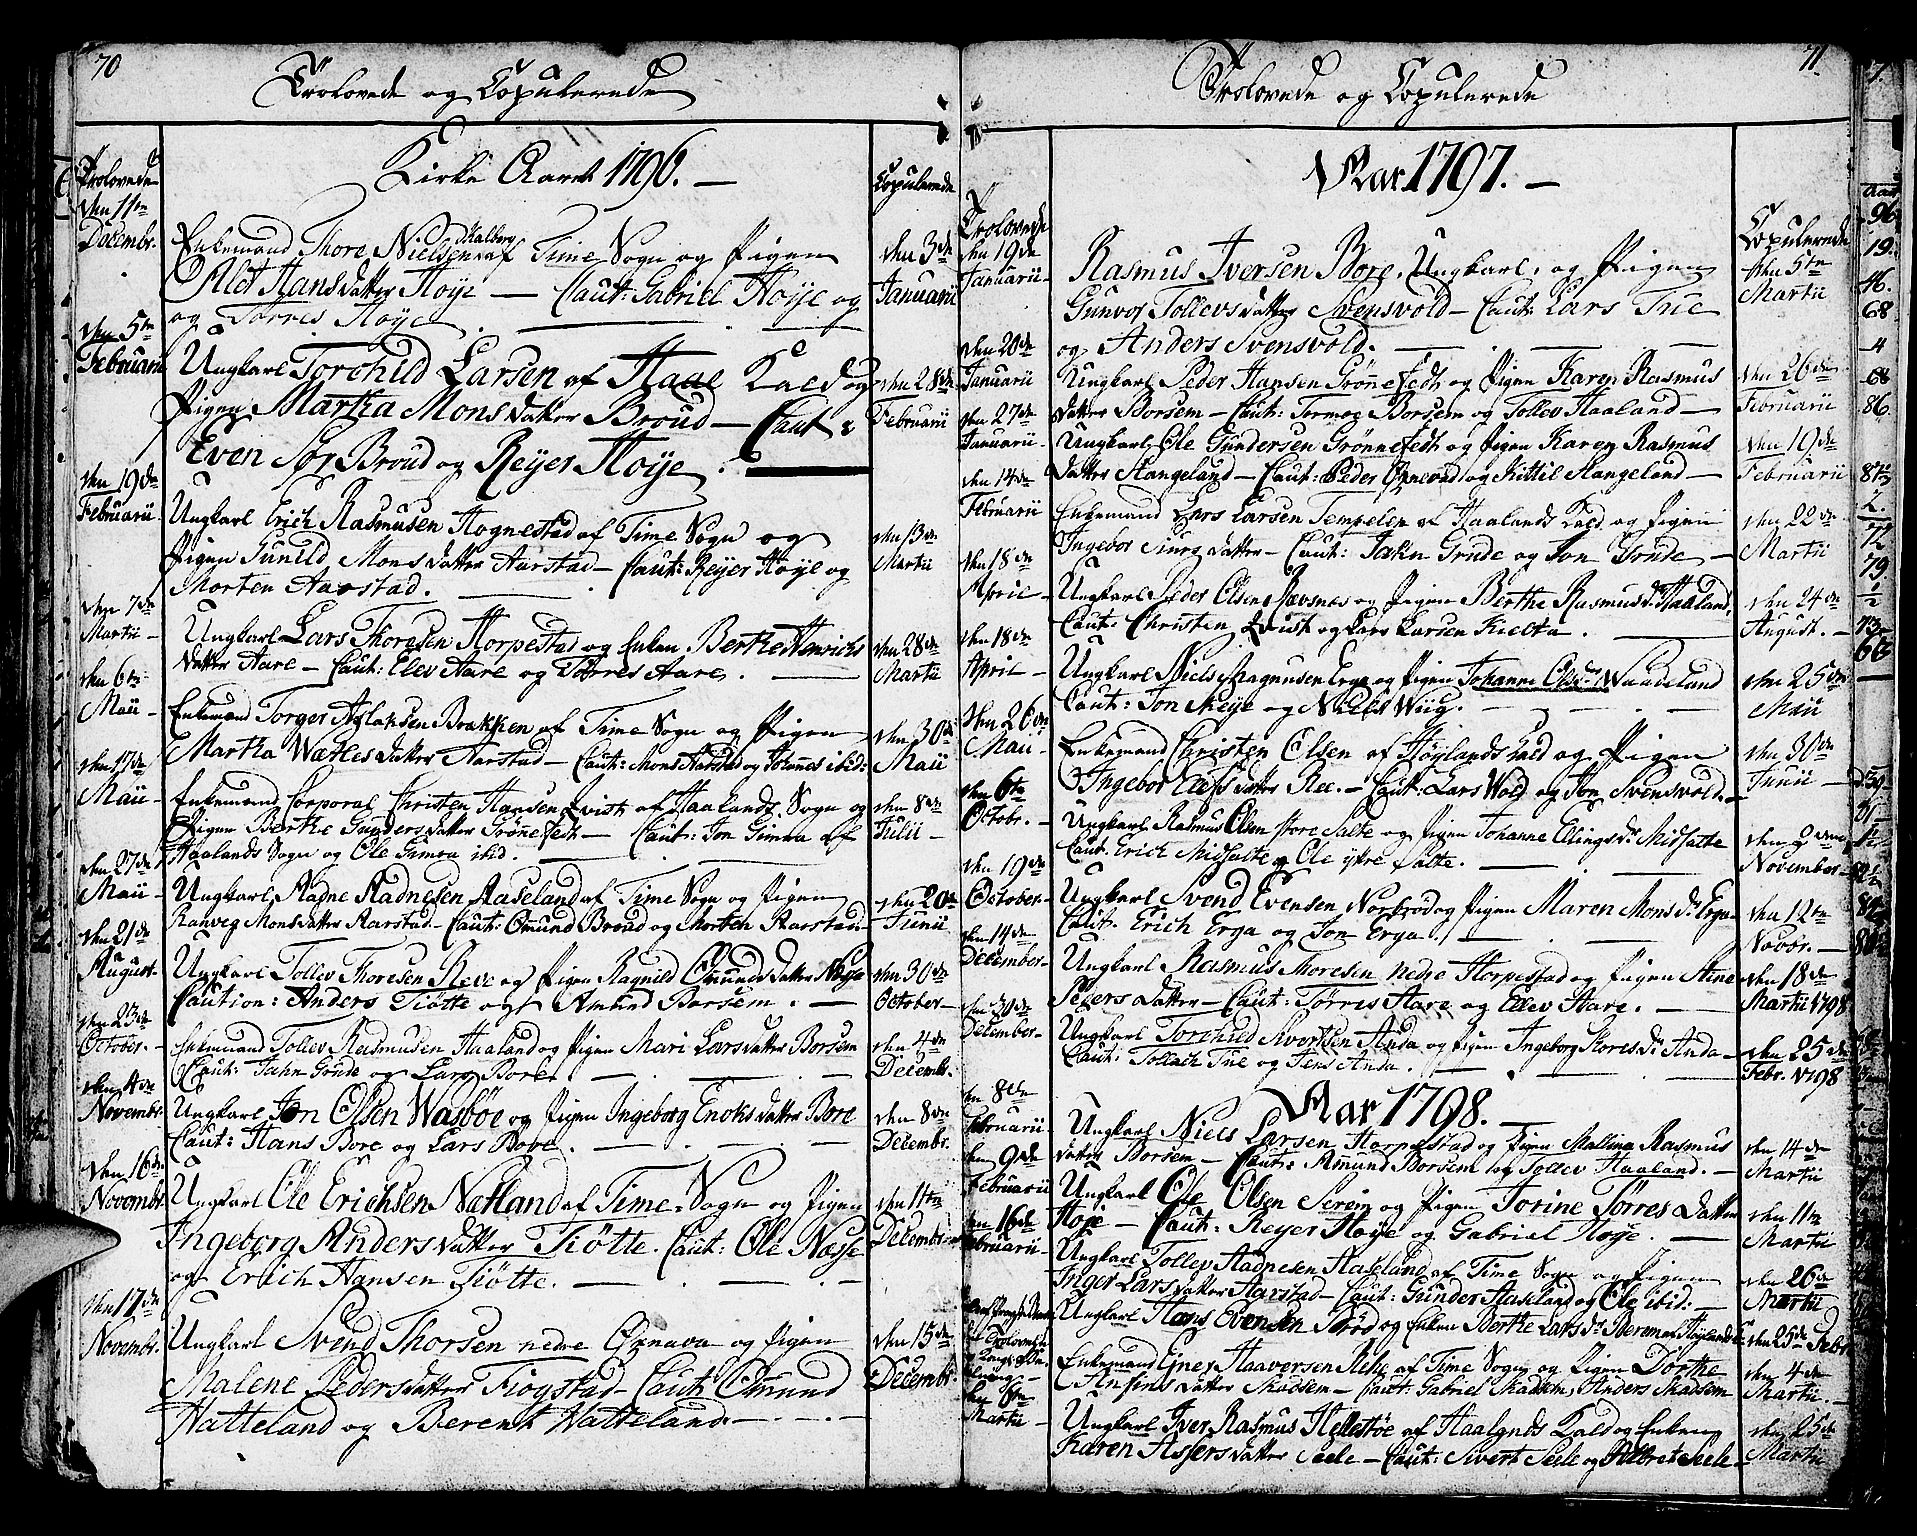 70
Trolovede og Copulerede
Kirke Aaret 1796. —
Trolovede
Copulerede
den 11te
Decembr.
Enkemand Thore Nielsen Kalberg af Time Sogn og Pigen
Alet Hansdatter Høÿe — Caut: Gabriel Høÿe og
og Tørres Høÿe
den 3de
Januarii
den 5te
Februarii
Ungkarl Torchild Larsen af Haae Kald og
Pigen Martha Monsdatter Broud — Caut:
Even Sør Broud og Reÿer Høÿe.
den 28de
Februarii
den 19de
Februarii
Ungkarl Erich Rasmusen Hognestad af Time Sogn og
Pigen Gunild Monsdatter Aarstad — Caut: Reÿer Høÿe og
Morten Aarstad.
den 13de
Martii
den 7de
Martii
Ungkarl Lars Thoresen Horpestad og Enken Berthe Henrichs
datter Aare — Caut: Elev Aare og Tørres Aare.
den 28de
Martii
den 6te
Maii
Enkemand Torger Aslaksen Brækken af Time Sogn og Pigen
Martha Wætlesdatter Aarstad — Caut: Mons Aarstad og Johannes ibid:
den 30de
Maii
den 17de
Maii
Enkemand Corporal Christen Hansen Qvist af Haalands Sogn og
Pigen Berthe Gundersdatter Grønefedt — Caut: Jon Gimra af
Haalands Sogn og Ole Gimra ibid.
den 8de
Julii
den 27de
Maii
Ungkarl Aadne Aadnesen Aaseland af Time Sogn og Pigen
Ranveg Monsdatter Aarstad — Caut: Omund Broud og Morten Aarstad
den 20de
Junii
den 21de
August
Ungkarl Tollev Thoresen Reve og Pigen Ragnild Omundsdatter Næse
Caution: Anders Tiøtte og Amund Borsem.
den 30de
October
den 23de
October
Enkemand Tollev Rasmusen Haaland og Pigen Mari Larsdatter Borsem
Caut: Jahn Grude og Lars Bore.
den 4de
Decembr.
den 4de
Novembr.
Ungkarl Jon Olsen Wasbøe og Pigen Ingeborg Enoksdatter Bore
Caut: Hans Bore og Lars Bore.
den 8de
Decembr.
den 16de
Novembr.
Ungkarl Ole Erichsen Natland af Time Sogn og Pigen
Ingeborg Andersdatter Tiøtte. Caut: Ole Næsse
og Erich Hansen Tiøtte.
den 11te
Decembr.
den 17de
Novembr.
Ungkarl Svend Thorsen nedre Øxnava og Pigen
Malene Pedersdatter Frøgstad — Caut: Omund
Hatteland og Berent Hatteland.
den 15de
Decembr.
71.
Trolovede og Copulerede
Aar 1797. —
Trolovede
Copulerede
den 19de
Januarii
Rasmus Iversen Bore, Ungkarl, og Pigen
Gunvor Tollevsdatter Svensvold — Caut: Lars Tue
og Anders Svensvold.
den 5te
Martii
den 20de
Januarii
Ungkarl Peder Hansen Grønnefedt og Pigen Karen Rasmus
datter Borsem — Caut: Tormoe Borsem og Tollev Haaland —
den 26de
Februarii
den 27de
Januarii
Ungkarl Ole Gundersen Grønnefedt og Pigen Karen Rasmus
datter Stangeland — Caut: Peder Øxnevad og Kittil Stangeland —
den 19de
Februarii
den 14de
Februarii
Enkemand Lars Larsen Tempelen af Haalands Kald og Pigen
Ingebor Siurs datter — Caut: Jahn Grude og Jon Grude —
den 22de
Martii
den 18de
April
Ungkarl Peder Olsen Revsnes og Pigen Berthe Rasmusdr Haaland,
Caut: Christen Qvist og Lars Larsen Kielta.
den 24de
August.
den 18de
April
Ungkarl Niels Magnusen Erga og Pigen Johanne Olsdr Waadeland
Caut: Jon Reÿe og Niels Wiig.
den 25de
Maii
den 26de
Maii
Enkemand Christen Olsen af Høÿlands Kald og Pigen
Ingebor Elefsdatter Ree. — Caut: Lars Wold og Jon Svensvold.
den 30de
Junii
den 6te
Octobr.
Ungkarl Rasmus Olsen store Salte og Pigen Johanne Ellingsdr Midsalte
Caut: Erich Midsalte og Ole ÿtre Salte.
den 2den
November
den 19de
October
Ungkarl Svend Evensen Norbrod og Pigen Maren Monsdr Erga
Caut. Erich Erga og Jon Erga.
den 12te
Novbr.
den 14de
December
Ungkarl Rasmus Thoresen nedre Horpestad og Pigen Stina
Pedersdatter — Caut: Tørres Aare og Ellev Aare.
den 18de
Martii 1798
den 29de
December
Ungkarl Torchild Sivertsen Anda og Pigen Ingeborg Thoresdr Anda —
Caut: Tollach Tue og Jens Anda.
den 25de
Febr. 1798
Aar 1798. —
den 8de
Februarii
Ungkarl Niels Larsen Horpestad og Pigen Mallina Rasmus
datter Borsem — Caut: Amund Borsem og Tollev Haaland. —
den 14de
Martii
den 9de
Februarii
Ungkarl Ole Olsen Serem og Pigen Torine Tørres datter
Høÿe — Caut: Reÿer Høÿe og Gabriel Høÿe.
den 11te
Martii
den 16de
Februarii
Ungkarl Tollev Aadnesen Aaseland af Time Sogn og Pigen
Inger Larsdatter Aarstad — Caut: Gunder Aaseland og Ole ibid: —
den 26de
Martii
Ungkarl Hans Evensen Brod og Enken Berthe Larsdr Berem af Høÿlands
den 25de Febr
Enkemand Ejner Haaversen Reke af Time Sogn og Pigen Dorthe
Ansinsdatter Skadsem — Caut: Gabriel Skadsem, Anders Skadsem
den 4de
Martii.
Martii
Ungkarl Iver Rasmus Hellestøe af Haalands Kald og Enken
Karen Assersdatter Seele — Caut: Sivert Seele og Albret Seele
den 25de
Martii